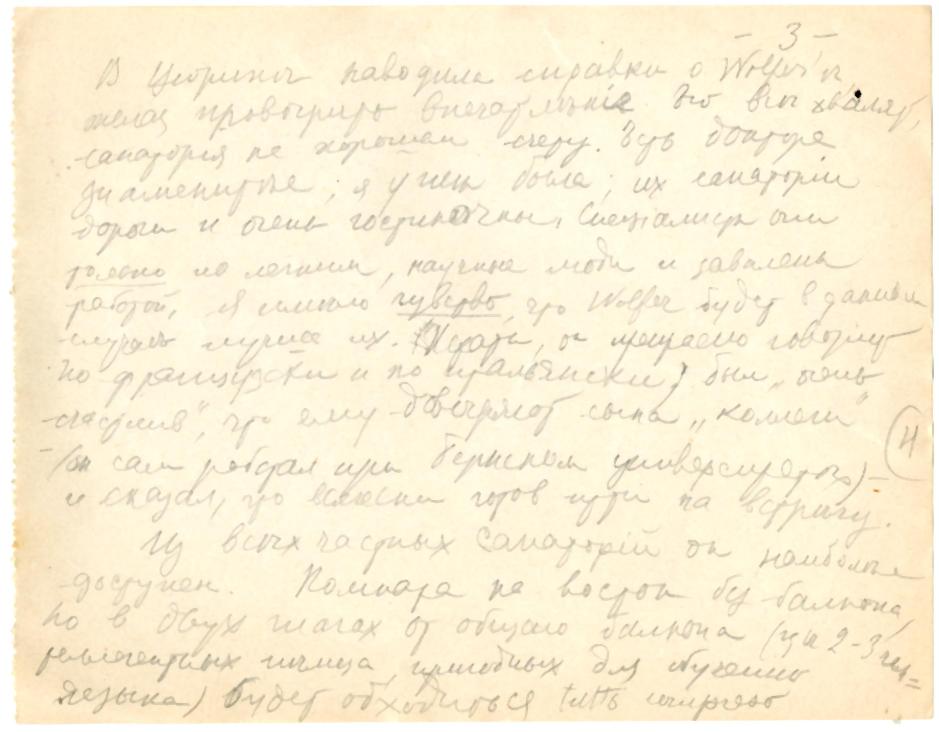 – 3 –
В Цюрихѣ наводила справки о Wolfer'ѣ
желая провѣрить впечатлѣнiе. Его всѣ хвалят,
санаторiя на хорошем счету. Есть доктора
знаменитые; я у них была; их санаторiи
дороги и очень гостиничны. Спецiалисты они
только по легким, научные люди и завалены
работой, я имею чувство, что Wolfer будет в данном
случаѣ лучше их. Кстати, он прекрасно говорит
по французски и по итальянски; был „очень
счастлив", что ему довѣряют сына „коллеги"
– (он сам работал при Бернском университетѣ) –
и сказал, что всячески готов идти на встрѣчу.
4
Из всѣх частных санаторiй он наиболѣе
доступен. Комната на восток без балкона,
но в двух шагах от общаго балкона (из 2-3 ин-
теллигентных нѣмца, пригодных для обученiя
языка) будет обходиться